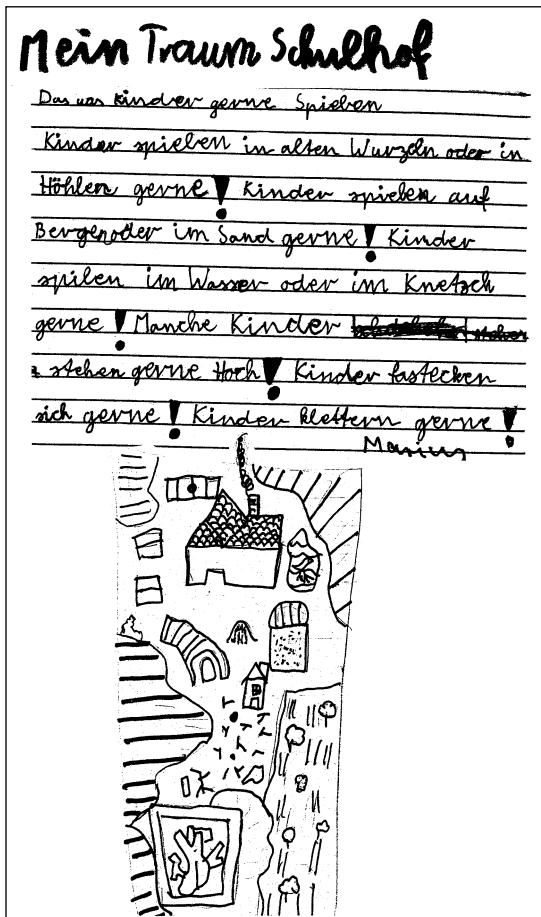 Mein Traum Schulhof
Das was Kinder gerne Spielen
Kinder spielen in alten Wurzeln oder in
Höhlen gerne! Kinder spielen auf
Bergenoder im Sand gerne! Kinder
spilen im Wasser oder im Knetsch
gerne! Manche Kinder
stehen gerne Hoch! Kinder fastecken
sich gerne! Kinder klettern gerne!
Marius